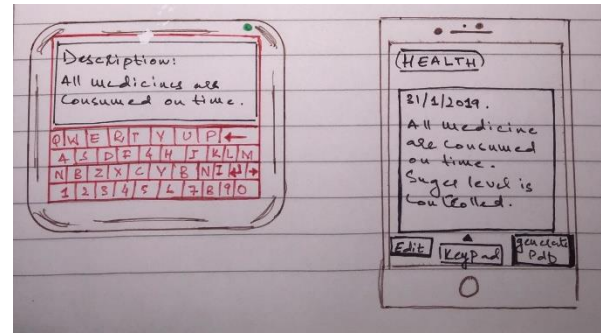 Description:
All medicines are
Consumed on time.
Q W E R T Y U P ←
A S D F G H J K L M
N B Z X C Y B N I ↵ →
1 2 3 4 5 6 7 8 9 0
HEALTH
31/1/2019.
All medicine
are consumed
on time.
Suger level is
controlled.
Edit
KeyPad
generate
Pdf